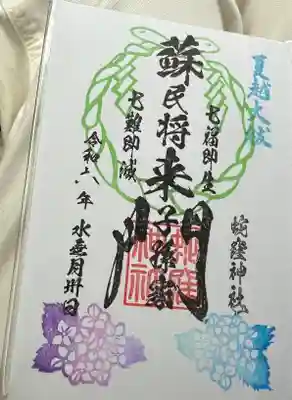 夏越大祓
蛇窪神社
七福即生
蘇民将来子孫家門
七難即滅
令和六年 水無月卅日
蛇窪神社